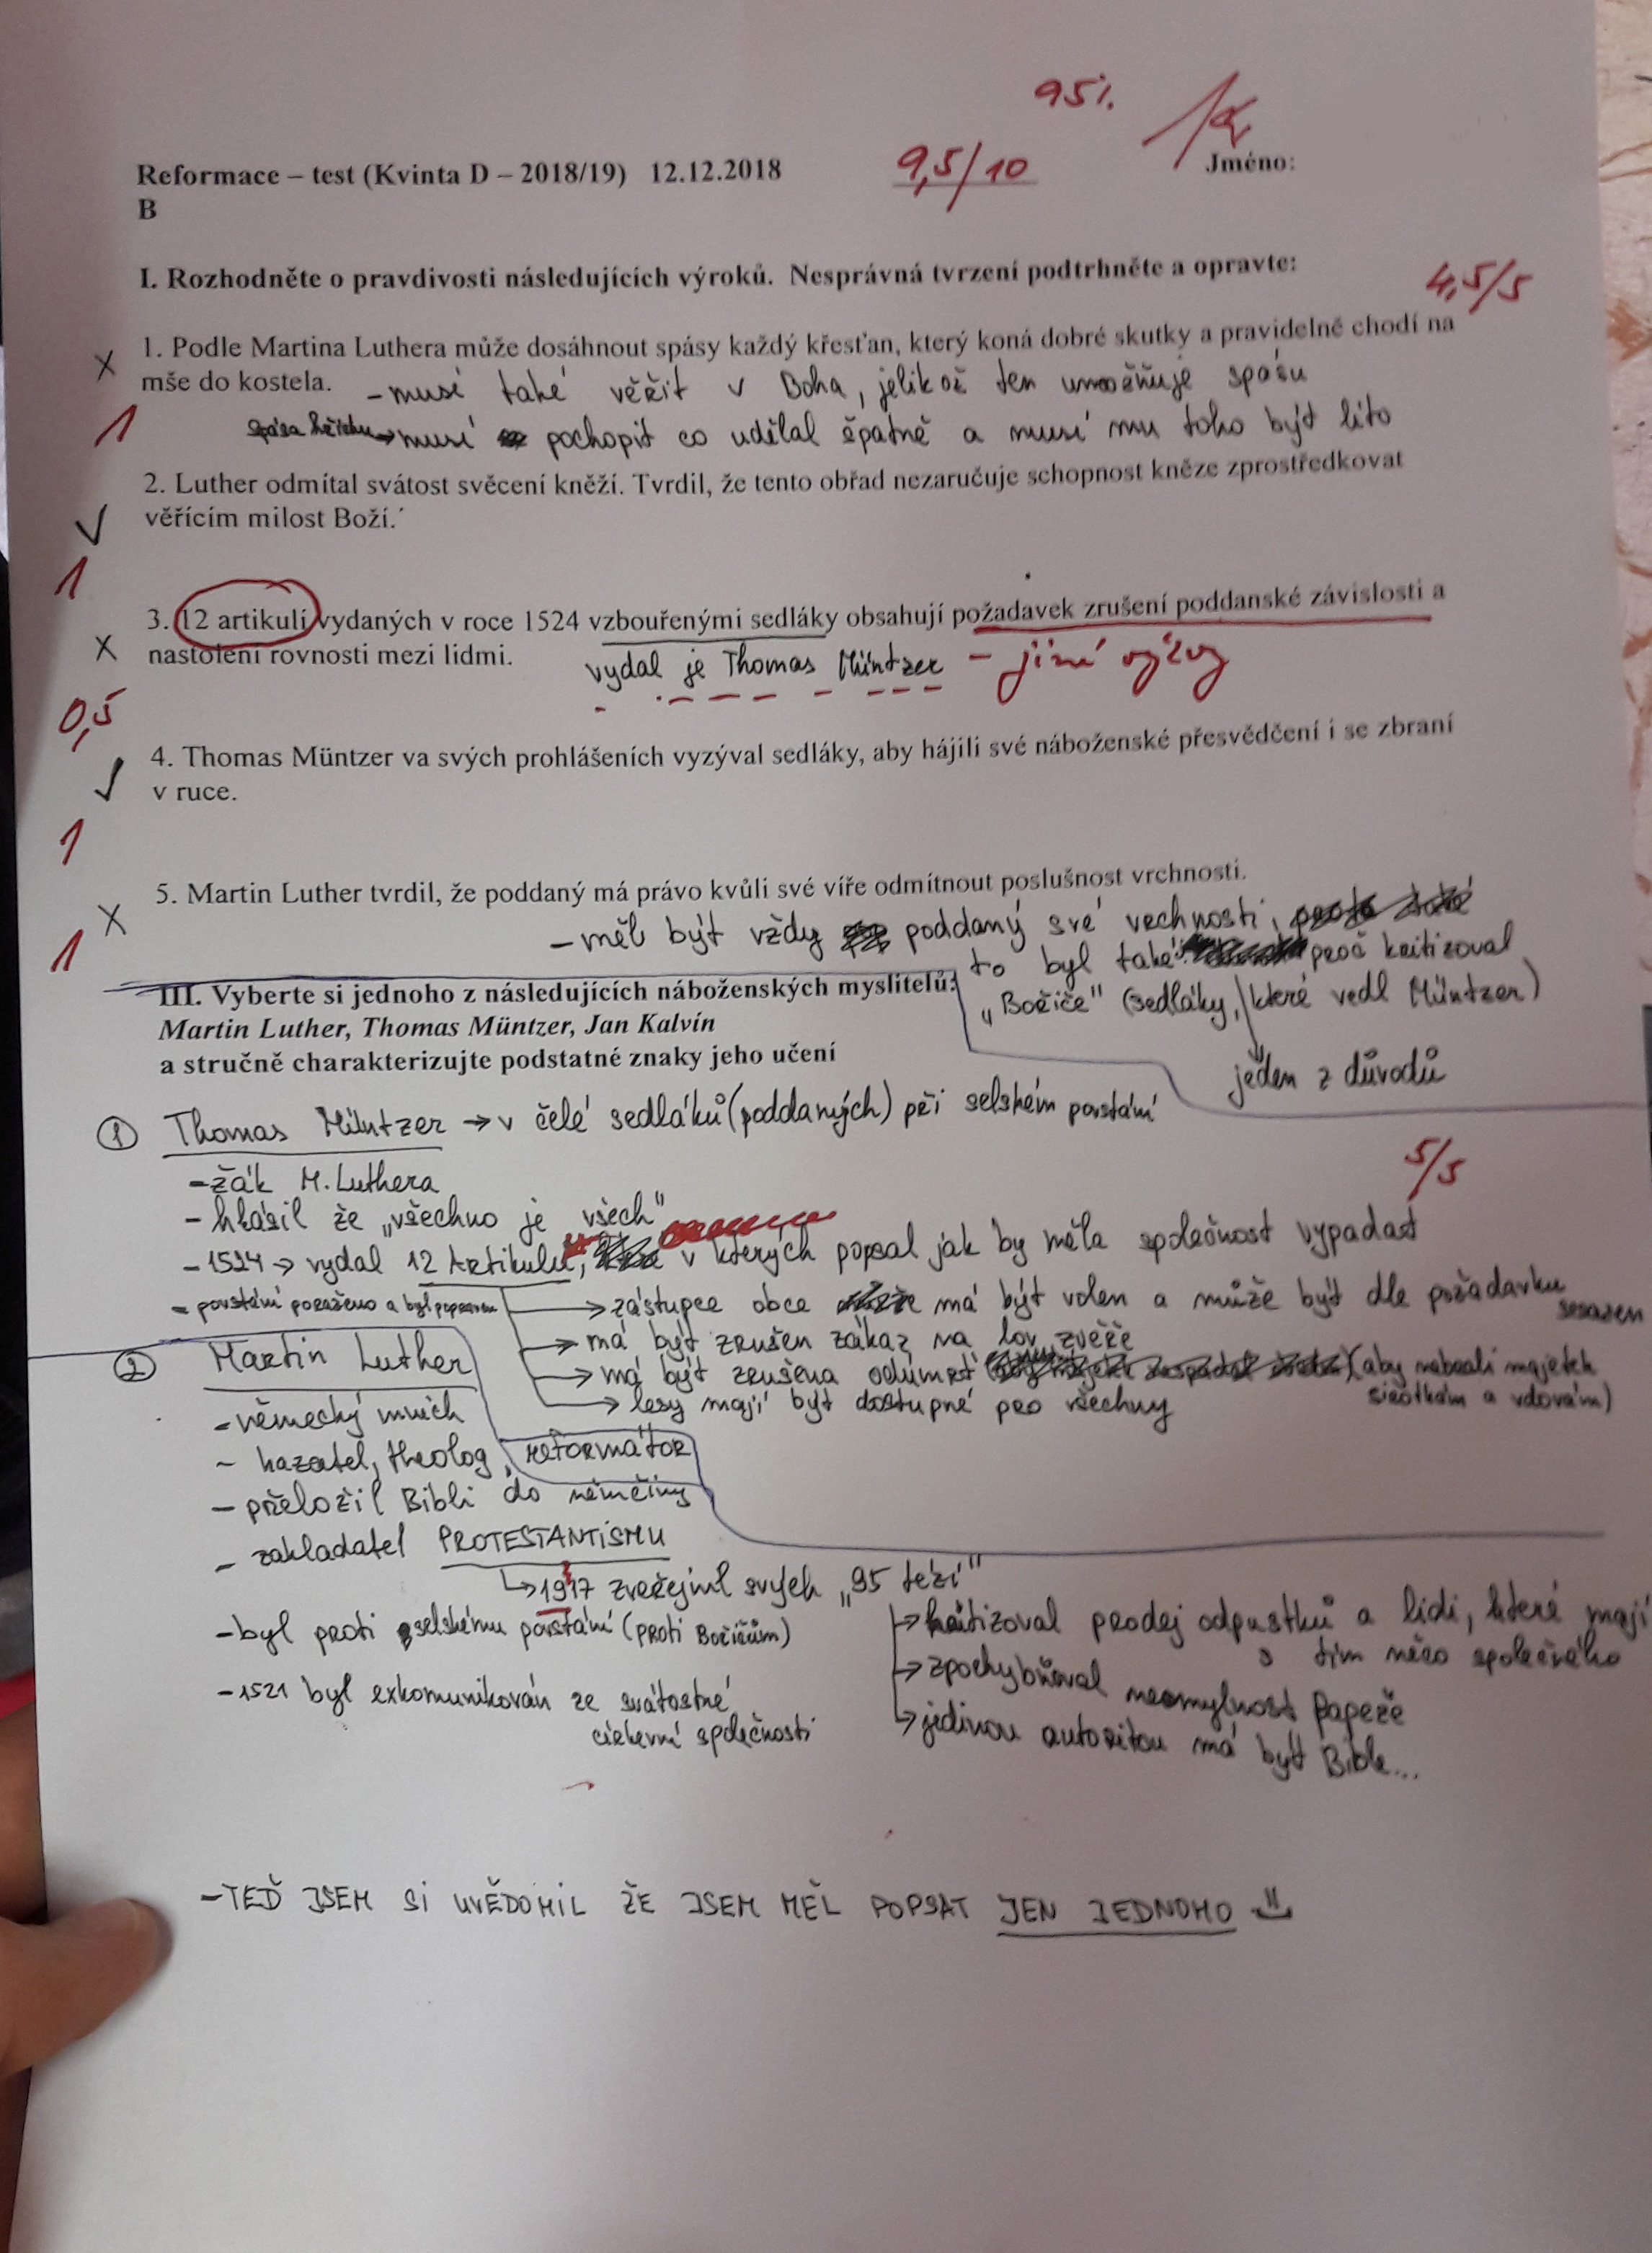 95%
9,5/10
Reformace – test (Kvinta D – 2018/19) 12.12.2018
Jméno:
B
I. Rozhodněte o pravdivosti následujících výroků. Nesprávná tvrzení podtrhněte a opravte:
4,5/5
x 1. Podle Martina Luthera může dosáhnout spásy každý křesťan, který koná dobré skutky a pravidelně chodí na
mše do kostela. - musí také věřit v Boha, jelikož ten umožňuje spásu
1 musí pochopit co udělal špatně a musí mu toho být líto
2. Luther odmítal svátost svěcení kněží. Tvrdil, že tento obřad nezaručuje schopnost kněze zprostředkovat
✓ věřícím milost Boží.
1
3. 12 artikulí vydaných v roce 1524 vzbouřenými sedláky obsahují požadavek zrušení poddanské závislosti a
x nastolení rovnosti mezi lidmi. vydal je Thomas Müntzer - jiné výzvy
0,5
4. Thomas Müntzer va svých prohlášeních vyzýval sedláky, aby hájili své náboženské přesvědčení i se zbraní
✓ v ruce.
1
5. Martin Luther tvrdil, že poddaný má právo kvůli své víře odmítnout poslušnost vrchnosti.
x - měl být vždy poddaný své vrchnosti,
1 to byl také proč kritizoval
"Bořiče" (sedláky, které vedl Müntzer)
jeden z důvodů
III. Vyberte si jednoho z následujících náboženských myslitelů:
Martin Luther, Thomas Müntzer, Jan Kalvín
a stručně charakterizujte podstatné znaky jeho učení
5/5
① Thomas Müntzer → v čele sedláků (poddaných) při selském povstání
- žák M. Luthera
- hlásil že „všechno je všech"
- 1524 → vydal 12 Artikulu, v kterých popsal jak by měla společnost vypadast
- povstání poraženo a byl popraven
→ zástupce obce má být volen a může být dle požadavku sesazen
→ má být zrušen zákaz na lov zvěře
→ má být zrušena odúmrť (aby nebrali majetek
sirotkám a vdovám)
→ lesy mají být dostupné pro všechny
② Martin Luther
- německý mnich
- kazatel, theolog, reformátor
- přeložil Bibli do němčiny
- zakladatel PROTESTANTISMU
↳ 1917 zveřejnil svých „95 tezí"
→ kritizoval prodej odpustků a lidi, které mají
s tím něco společného
→ zpochybňoval neomylnost papeže
→ jedinou autoritou má být Bible...
- byl proti selskému povstání (proti Bořičům)
- 1521 byl exkomunikován ze svátostné
církevní společnosti
- TEĎ JSEM SI UVĚDOMIL ŽE JSEM MĚL POPSAT JEN JEDNOHO